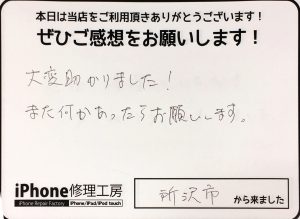 本日は当店をご利用頂きありがとうございます!
ぜひご感想をお願いします!
大変助かりました!
また何かあったらお願いします。
iPhone修理工房
iPhone Repair Factory iPhone/iPad/iPod touch
所沢市 から来ました